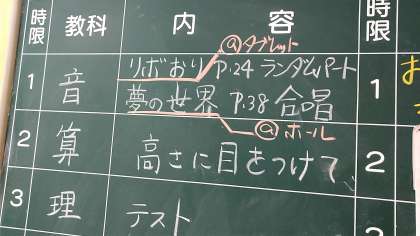 時限 教科 内容 時限
@タブレット
1 音 リボおり P.24 ランダムパート 1
夢の世界 P.38 合唱
@ホール
2 算 高さに目をつけて 2
3 理 テスト